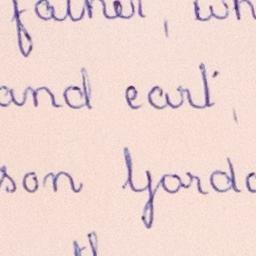 father, wh
and earl,
son Yardo
th